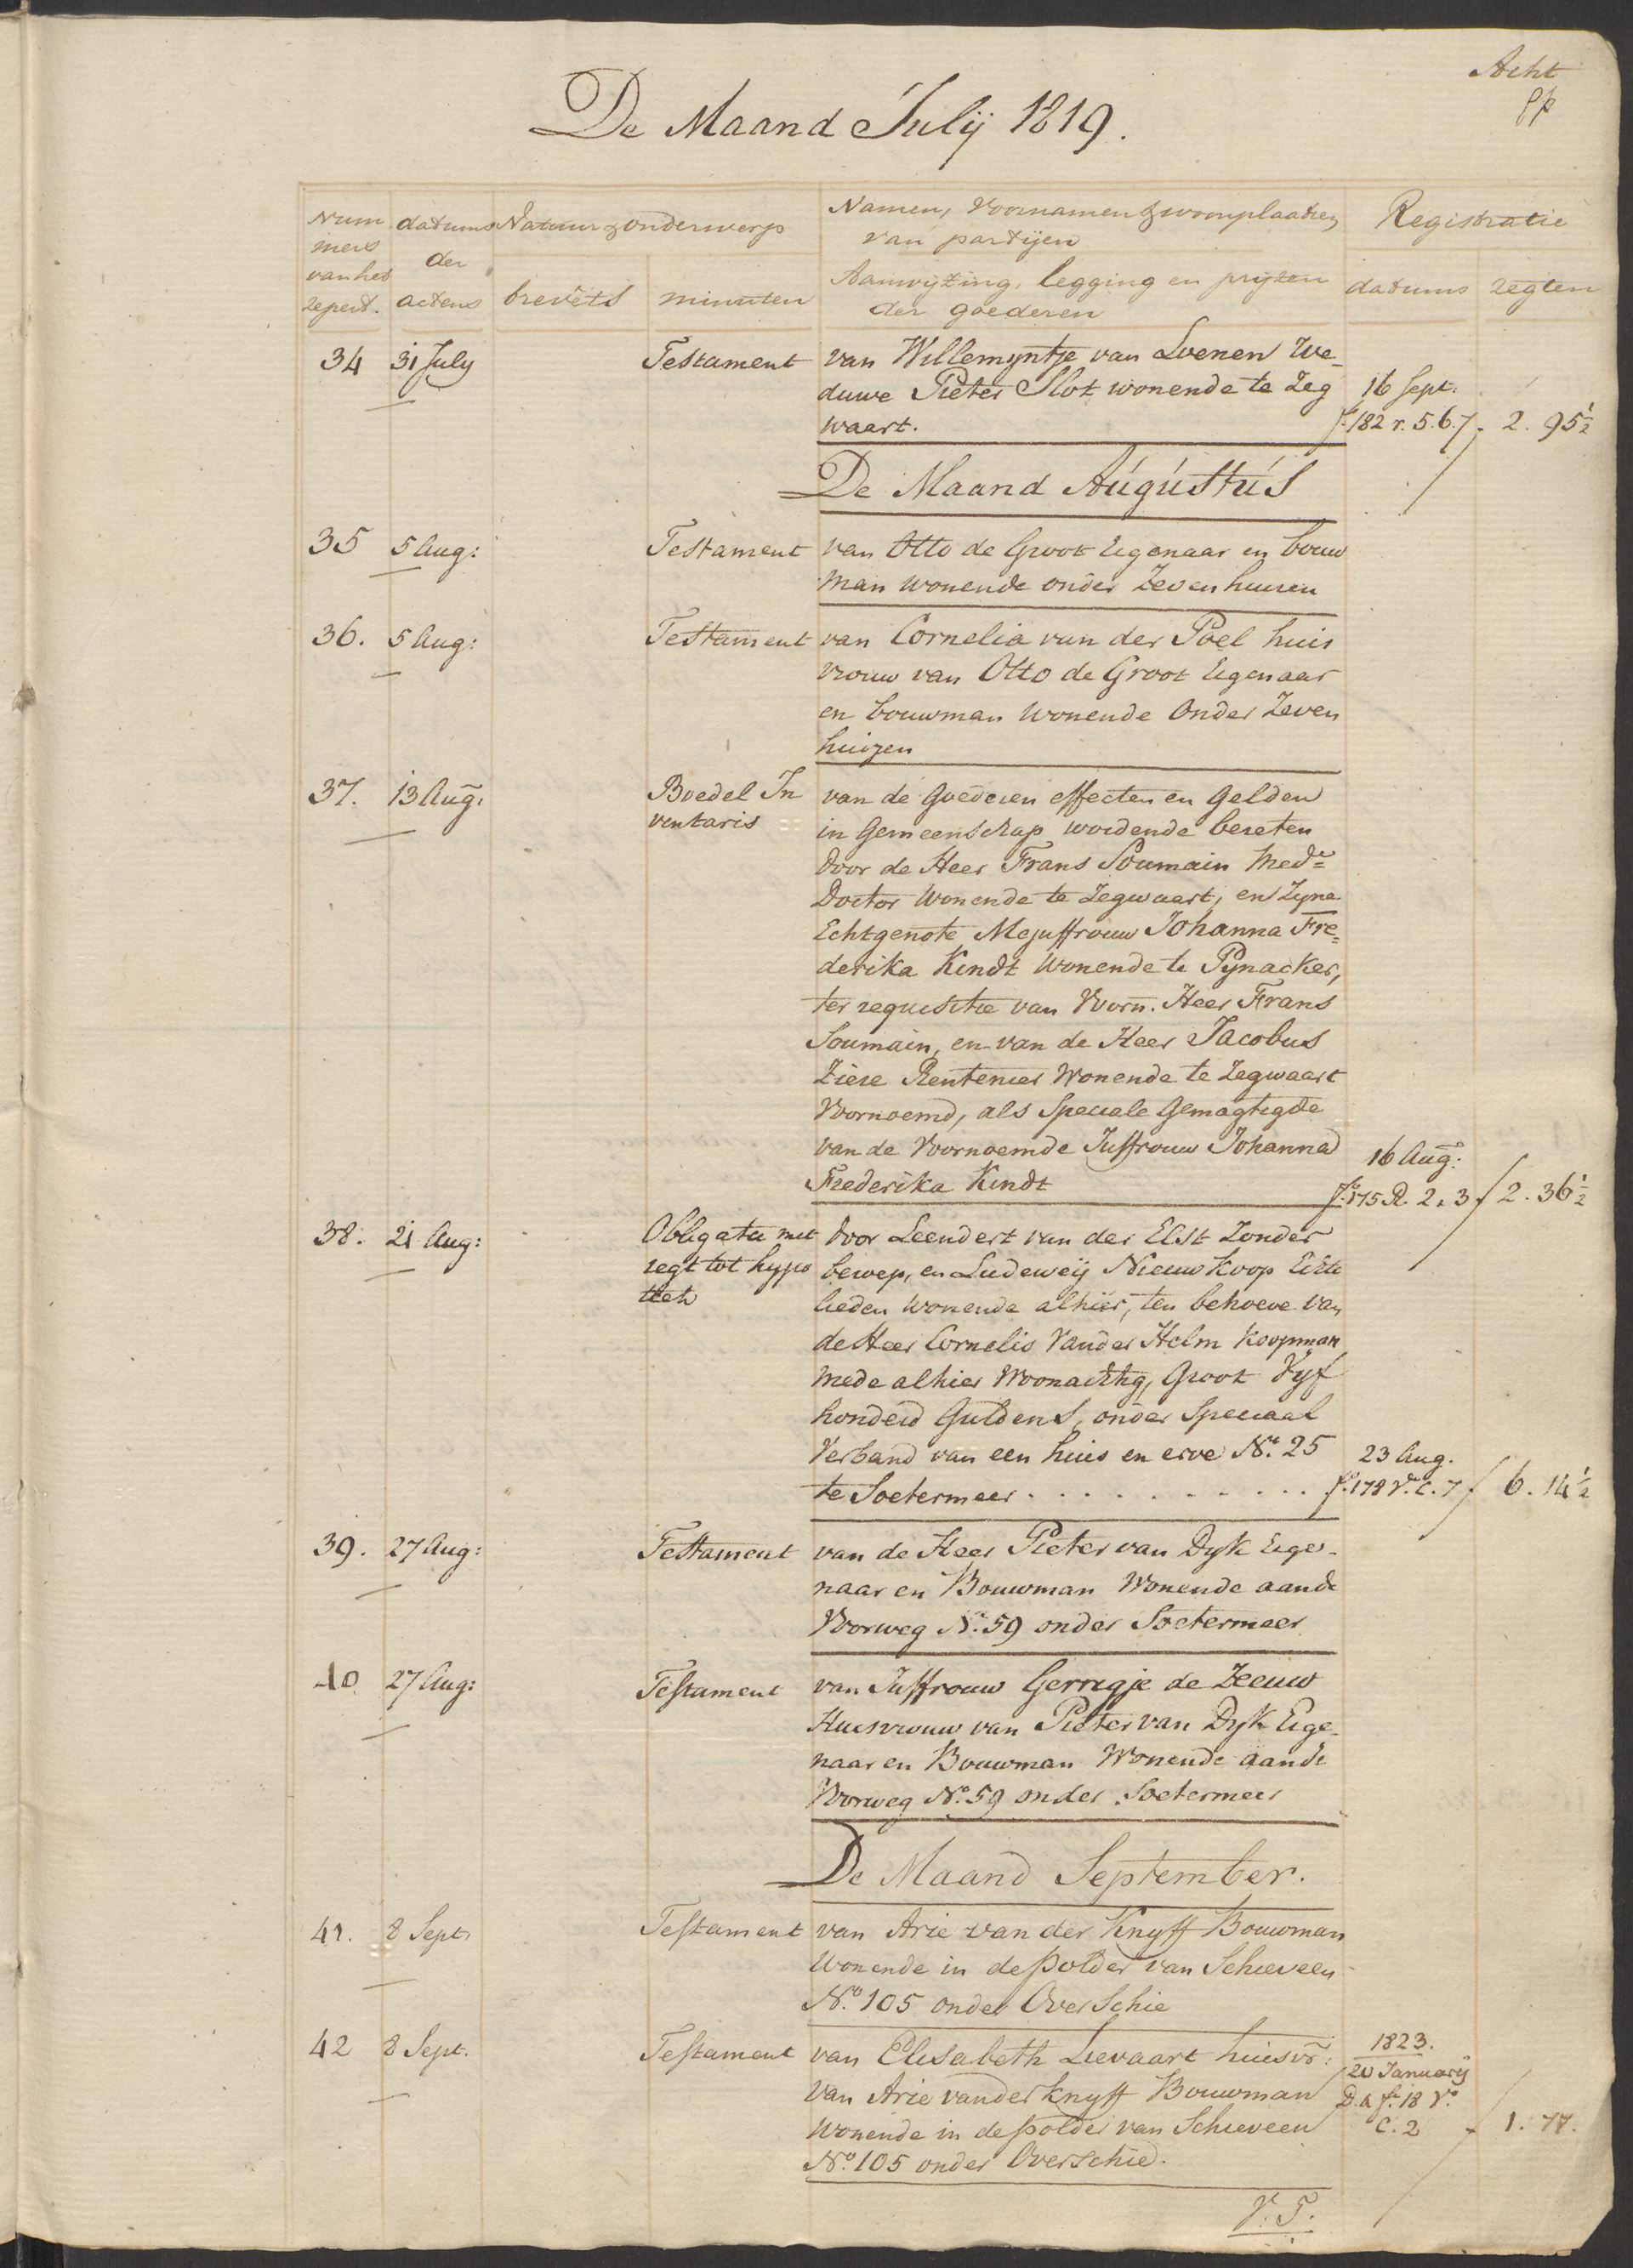 Acht
De Maand Julij 1819.
Num
mers
van het
repert.
datums
der
actens
Natuur & onderwerp
brevets
minuten
Namen, Voornamen & woonplaatsen
van partijen
Aanwyzing, legging en pryzen
der goederen
Registratie
datums
regten
34 31 July Testament van Willemyntje van Loenen We-
duwe Pieter Slot wonende te Zeg
waart.
16 Sept:
fo. 182 r. 5. 6. 7. 2. 95½
De Maand Augustus
35 5 Aug: Testament van Otto de Groot Eigenaar en bouw
man wonende onder Zevenhuisen
36. 5 Aug: Testament van Cornelia van der Poel huis
vrouw van Otto de Groot Eigenaar
en bouwman wonende Onder Zeven
huizen
37. 13 Aug: Boedel In
ventaris
van de Goederen effecten en Gelden
in Gemeenschap wordende bezeten
door de Heer Frans Soumain Med=
Doctor Wonende te Zegwaart, en Zyne
Echtgenote Mejuffrouw Johanna Fre=
derika Kindt Wonende te Pynacker,
ter requisitie van Voorn. Heer Frans
Soumain, en van de Heer Jacobus
Ziere Rentenier Wonende te Zegwaart
Voornoemd, als Speciale Gemagtigde
van de Voornoemde Juffrouw Johanna
Frederika Kindt
16 Aug:
fo. 175 R. 2. 3 f 2. 36½
38. 21 Aug: Obligatie met
regt tot hypo
theek
door Leendert van der Elst Zonder
beroep, en Ludeweij Nieuwkoop Echte
lieden wonende alhier, ten behoeve van
de Heer Cornelis Vander Helm Koopman
mede alhier Woonachtig, Groot Vyf
honderd Guldens, onder Speciaal
Verband van een huis en erve No. 25
te Soetermeer . . . . . . . . . . .
23 Aug.
fo. 178 Vo. C. 7 f 6. 14½
39. 27 Aug: Testament van de Heer Pieter van Dyk Eige-
naar en Bouwman Wonende aande
Voorweg No. 59 onder Soetermeer
40 27 Aug: Testament van Juffrouw Gerregje de Zeeuw
Huisvrouw van Pieter van Dyk Eige-
naar en Bouwman Wonende aande
Voorweg No. 59 onder Soetermeer
De Maand September.
41. 8 Sept. Testament van Arie van der Knyff Bouwman
Wonende in de polder van Schieveen
No. 105 onder Overschie
42 8 Sept. Testament van Elisabeth Lievaart huisvr:
van Arie vander Knyff Bouwman
Wonende in de polder van Schieveen
No. 105 onder Overschie.
1823.
20 Januarij
D. 2 fo. 18 Vo.
C. 2 f 1. 77.
V. T.